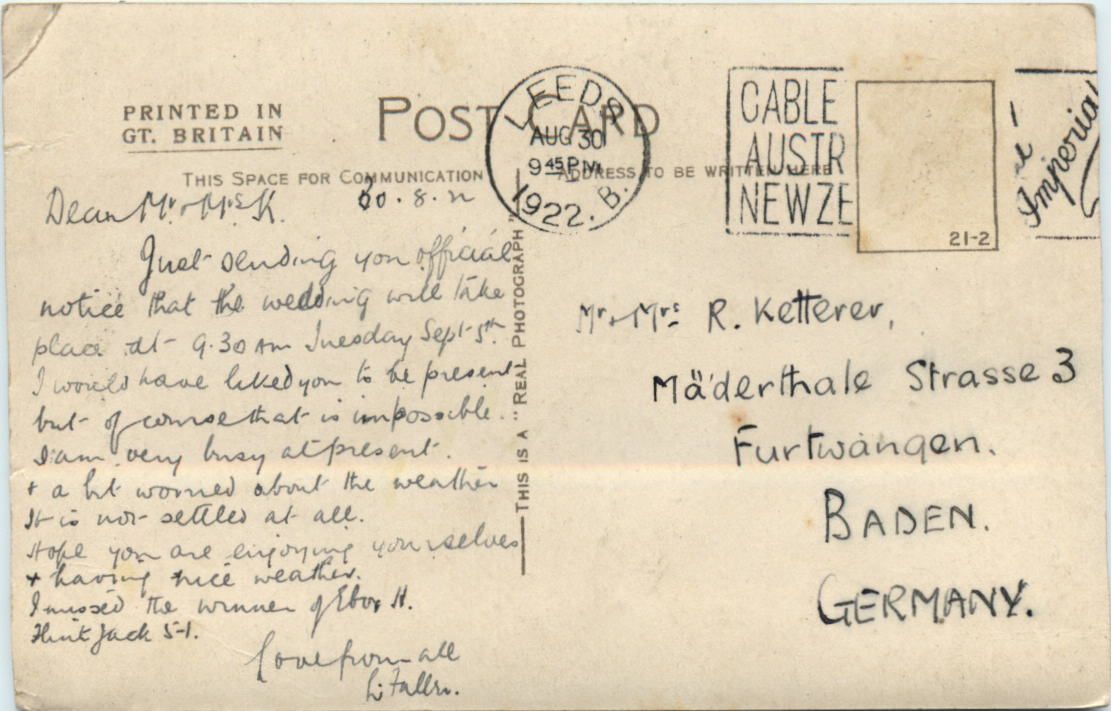 PRINTED IN
GT. BRITAIN
POST CARD
THIS SPACE FOR COMMUNICATION
ADDRESS TO BE WRITTEN HERE
LEEDS
AUG 30
9 45 PM
1922. B.
CABLE
AUSTR
NEWZE
Imperial
21-2
THIS IS A "REAL PHOTOGRAPH"
30.8.22
Dear Mr & Mrs K.
Just sending you official
notice that the wedding will take
place at 9.30 am Tuesday Sept 5th.
I would have liked you to be present
but of course that is impossible.
I am very busy at present.
+ a bit worried about the weather
It is not settled at all.
Hope you are enjoying yourselves
+ having nice weather.
I missed the winner of Ebor H.
Flint Jack 5-1.
Love from all
Mr & Mrs R. Ketterer,
Mäderthale Strasse 3
Furtwangen.
BADEN.
GERMANY.